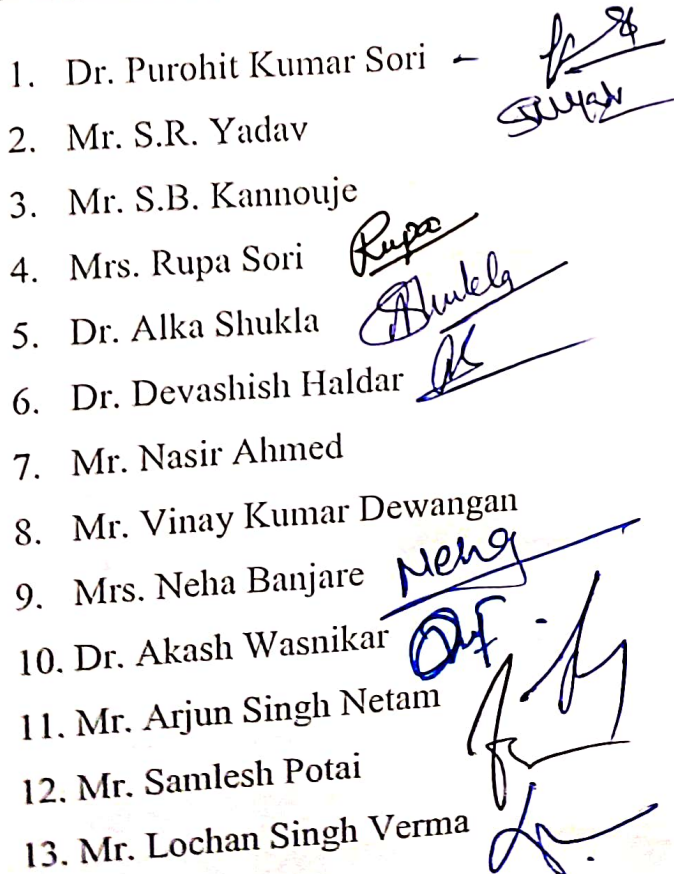 1. Dr. Purohit Kumar Sori -
2. Mr. S.R. Yadav
3. Mr. S.B. Kannouje
4. Mrs. Rupa Sori Rupa
5. Dr. Alka Shukla AShukla
6. Dr. Devashish Haldar
7. Mr. Nasir Ahmed
8. Mr. Vinay Kumar Dewangan
9. Mrs. Neha Banjare Neha
10. Dr. Akash Wasnikar
11. Mr. Arjun Singh Netam
12. Mr. Samlesh Potai
13. Mr. Lochan Singh Verma